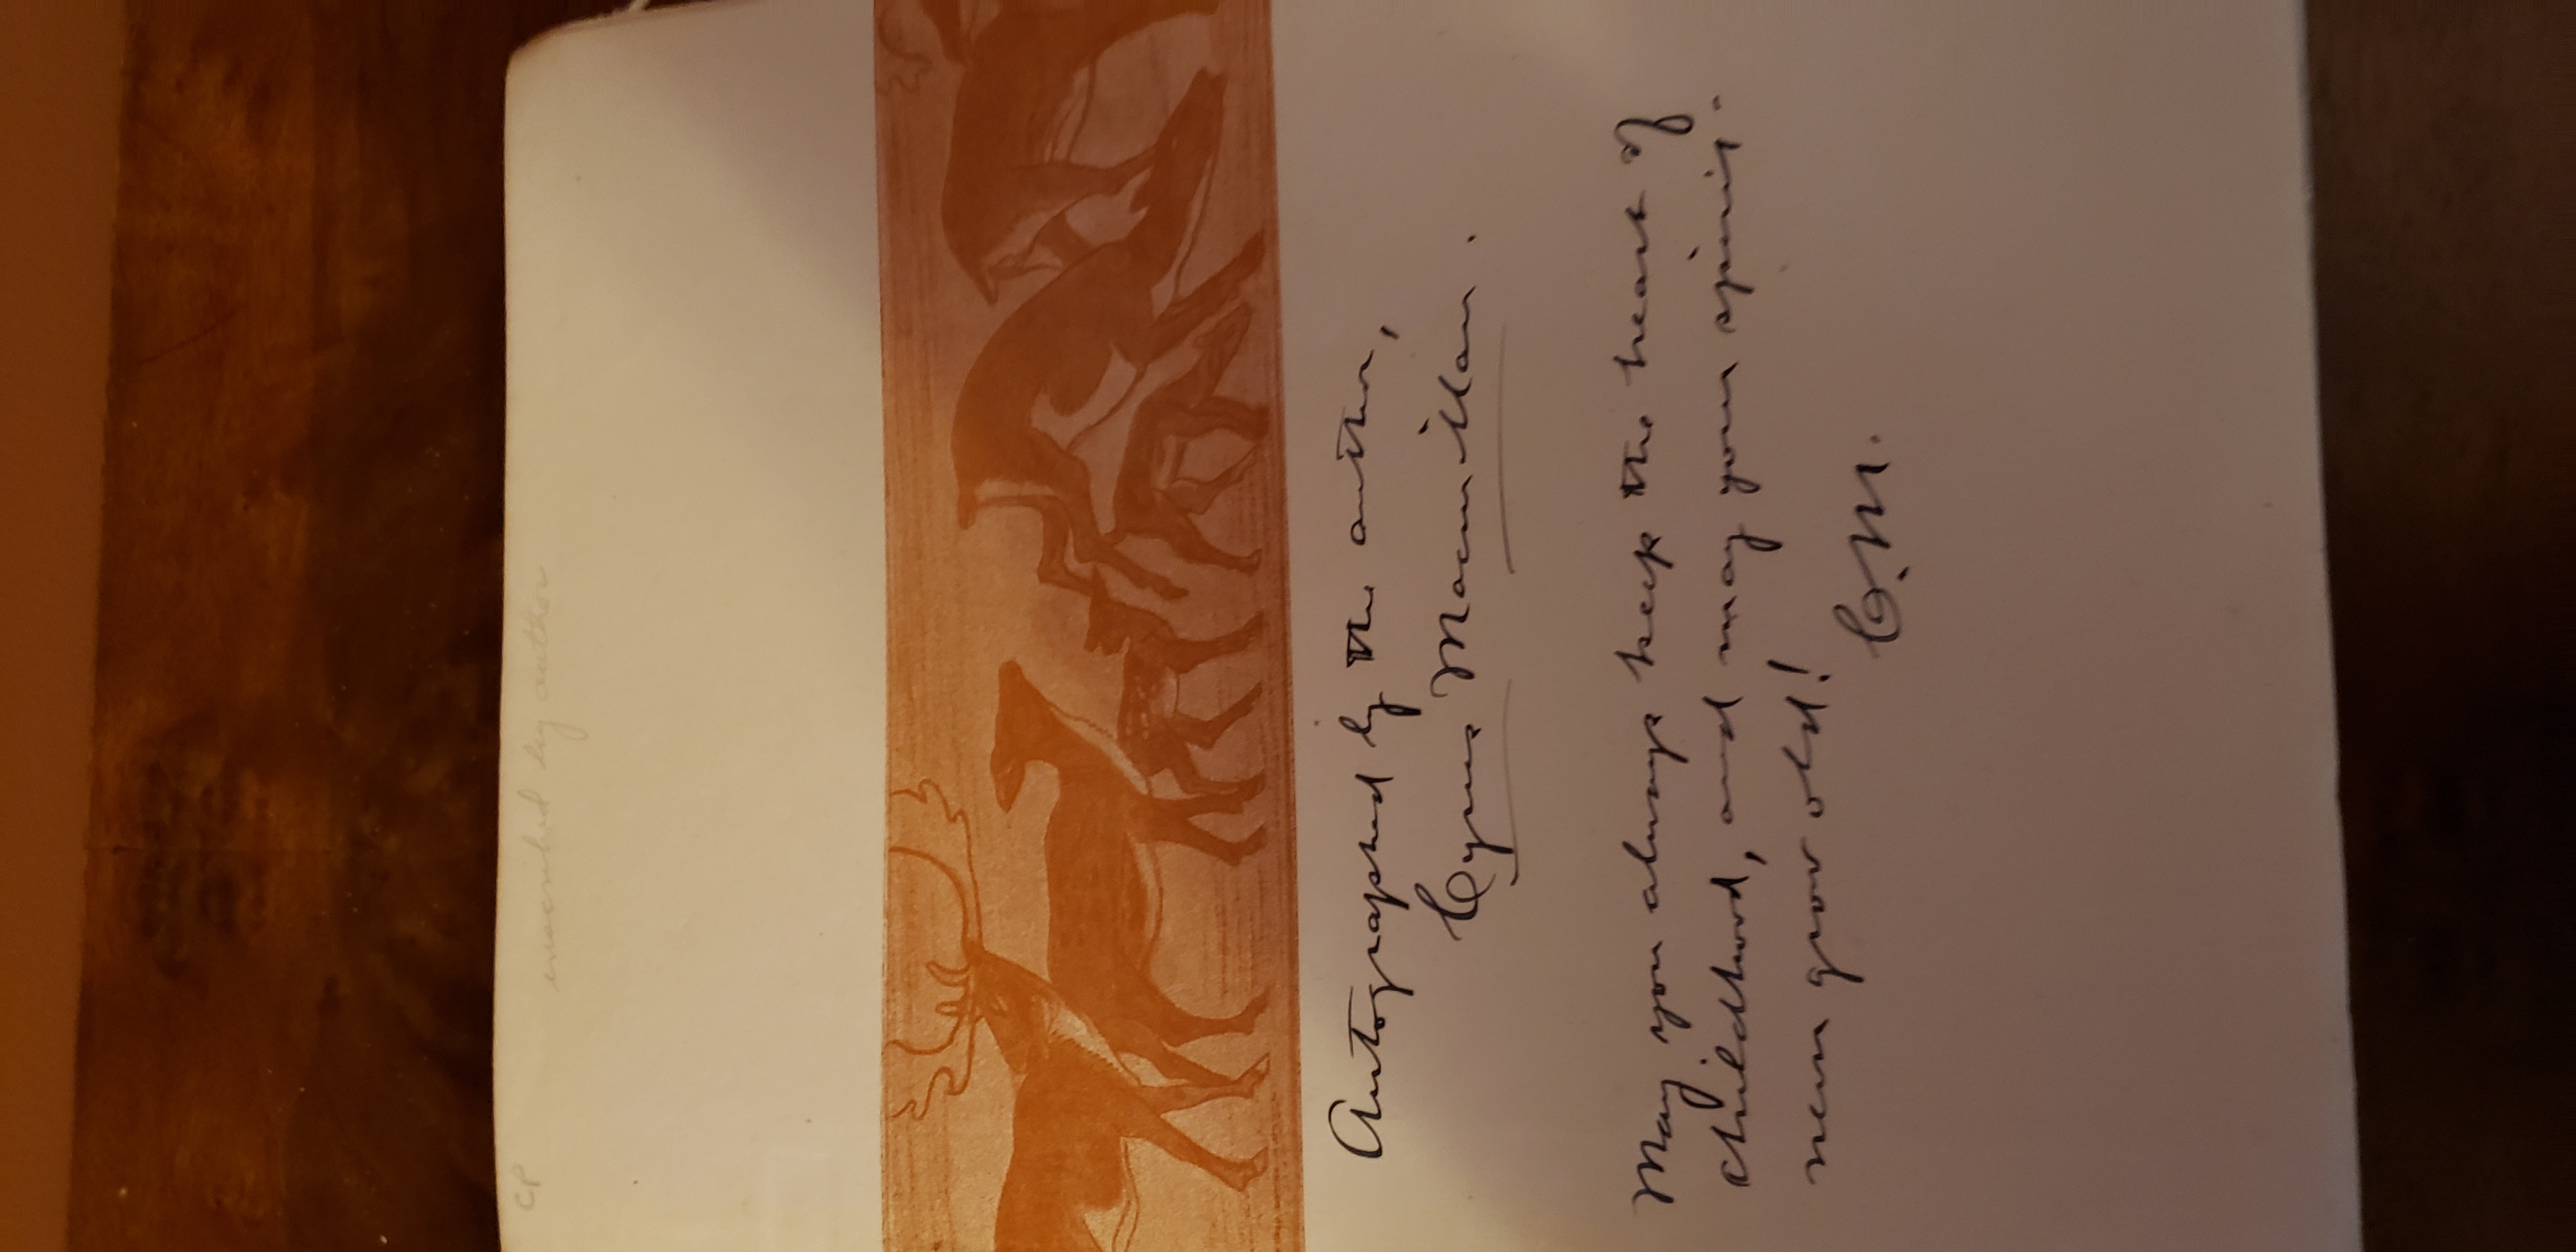 CP inscribed by author
Autographed by the author,
Cyrus Macmillan.
May you always keep the heart of
childhood, and may your spirit
never grow old!
C.M.